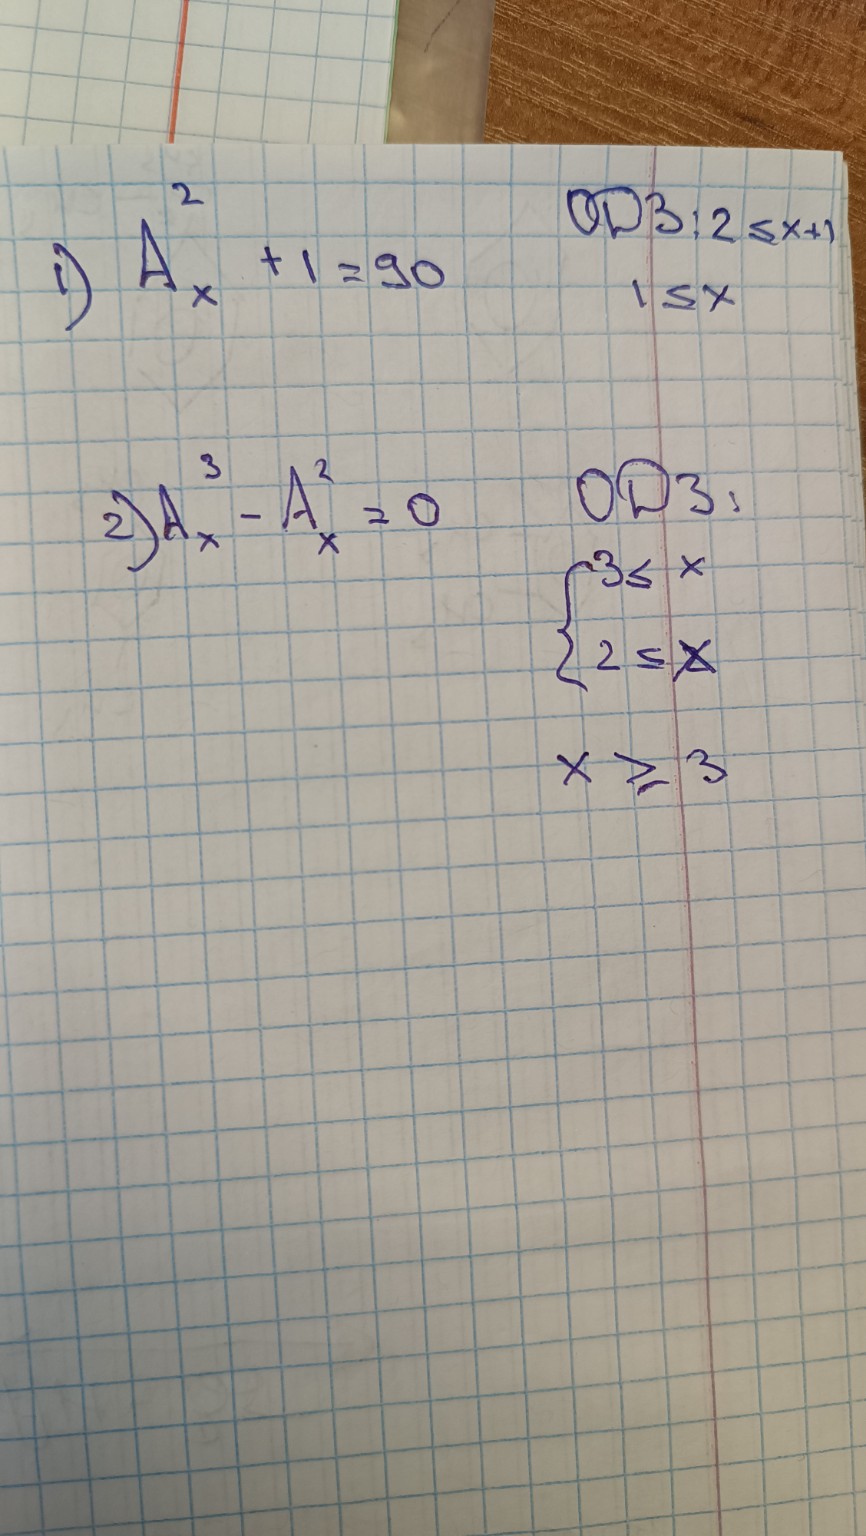 1) A²ₓ + 1 = 90
ОДЗ: 2 ≤ x+1
1 ≤ x
2) A³ₓ - A²ₓ = 0
ОДЗ:
{ 3 ≤ x
2 ≤ x
x ≥ 3